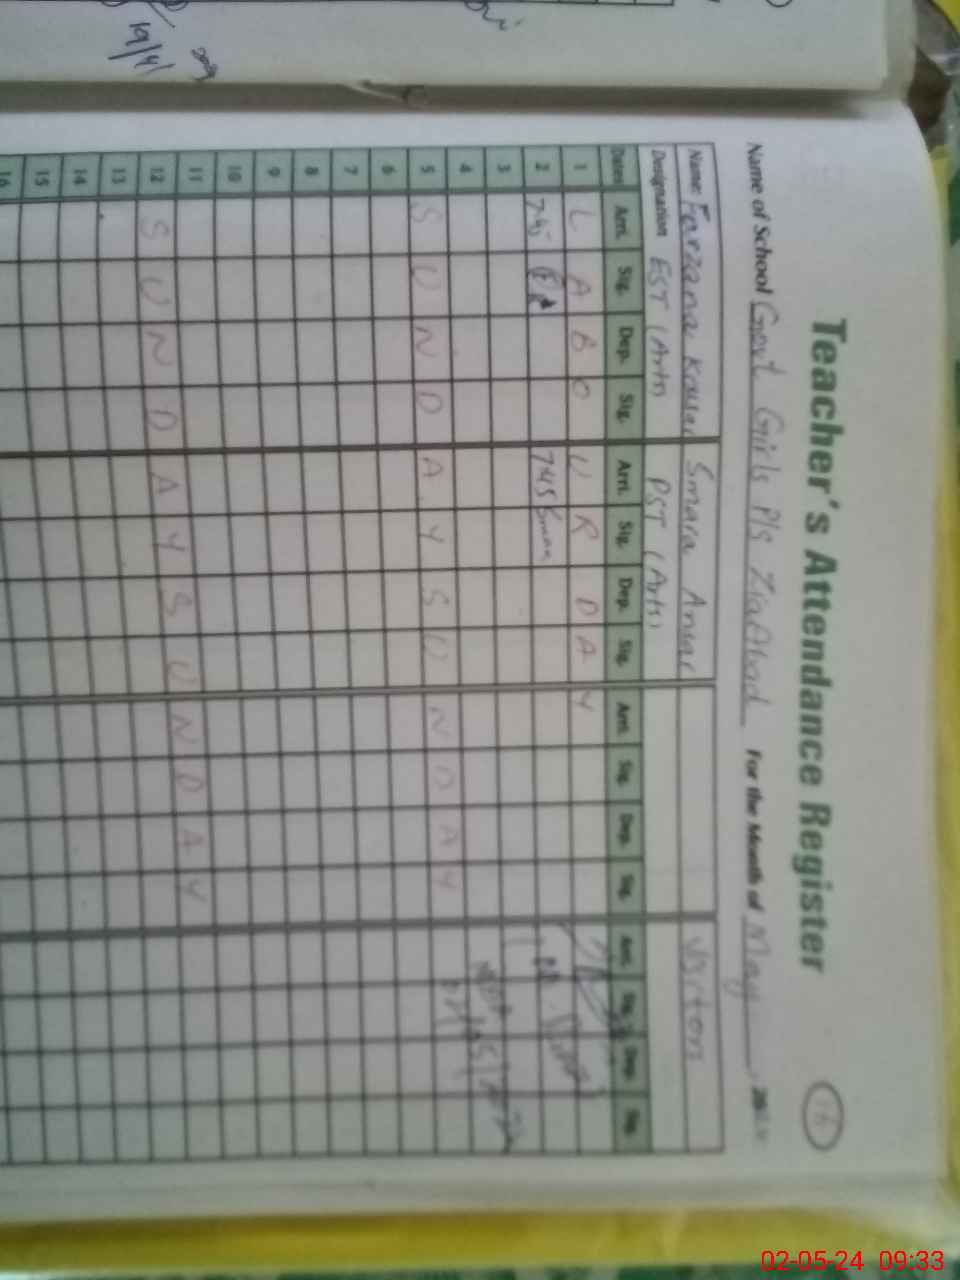 19/4/
Teacher's Attendance Register
16
Name of School Govt Girls P/S ZiaAbad For the Month of May
Name: Farzana Kousar Smara Anwar Visiton
Designation EST (Arts) PST (Arts)
Dates Arri. Sig. Dep. Sig. Arri. Sig. Dep. Sig. Arri. Sig. Dep. Sig. Arri. Sig. Dep. Sig.
1 L A B O U R D A Y
2 7:45 7:45 Smara
3
4
5 S U N D A Y S U N D A Y
6
7
8
9
10
11
12 S U N D A Y S U N D A Y
13
14
15
16
02-05-24 09:33